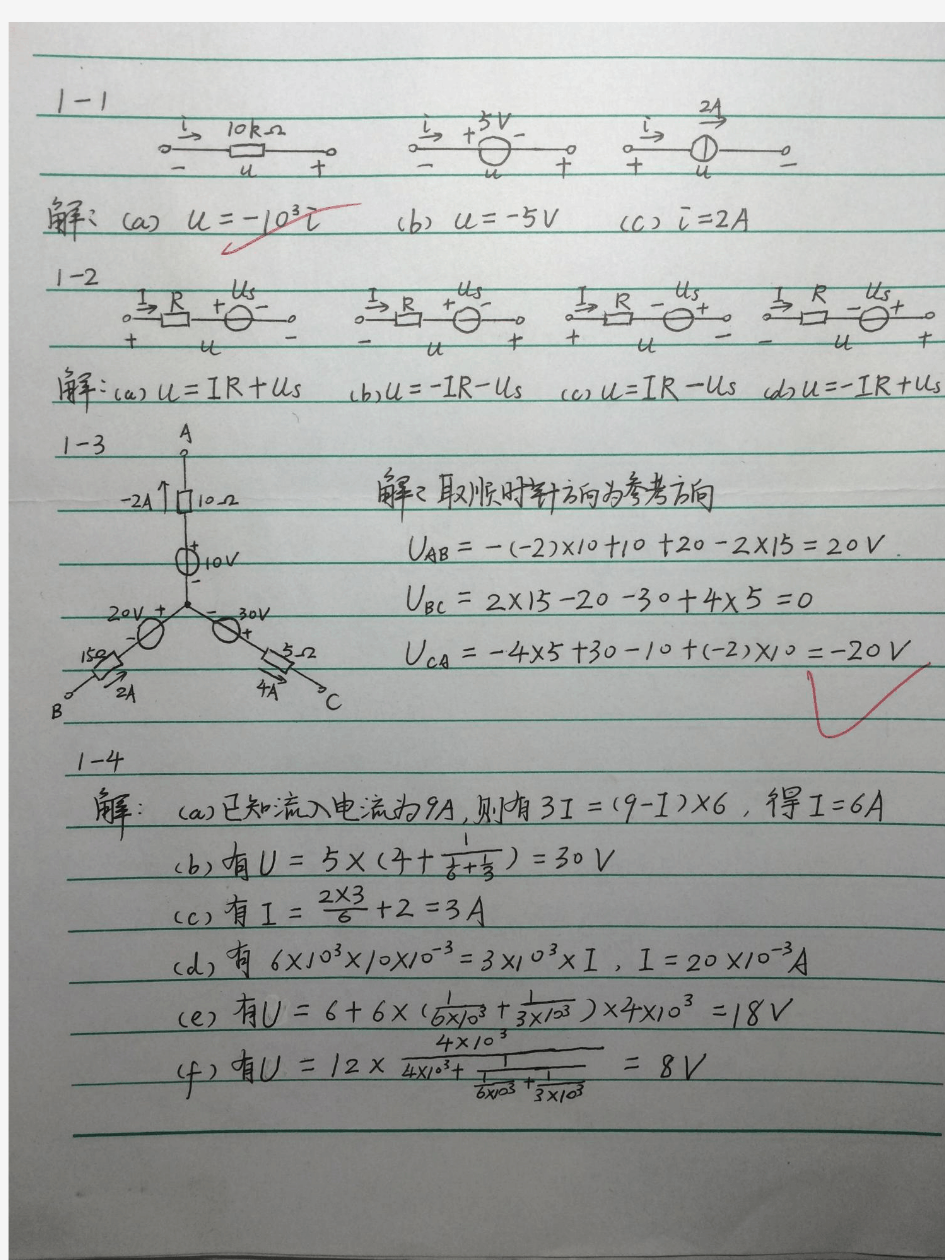 1-1
i 10kΩ i 5V i 2A
- u + + - - u + + u -
解: (a) u = -10³i (b) u = -5V (c) i = 2A
1-2
I R + Us - I R + Us - I R - Us + I R - Us +
+ u - - u + + u - - u +
解: (a) u = IR + Us (b) u = -IR - Us (c) u = IR - Us (d) u = -IR + Us
1-3
A
-2A 10Ω
+ 10V -
20V + - - 30V +
15Ω 5Ω
2A 4A
B C
解: 取顺时针方向为参考方向
U_AB = -(-2)×10+10+20-2×15 = 20V.
U_BC = 2×15-20-30+4×5 = 0
U_CA = -4×5+30-10+(-2)×10 = -20V
1-4
解: (a) 已知流入电流为9A, 则有 3I = (9-I)×6, 得 I = 6A
(b) 有 U = 5×(4+1/(1/6+1/3)) = 30V
(c) 有 I = (2×3)/6 + 2 = 3A
(d) 有 6×10³×10×10⁻³ = 3×10³×I, I = 20×10⁻³A
(e) 有U = 6+6×(1/(6×10³)+1/(3×10³))×4×10³ = 18V
(f) 有U = 12×(4×10³)/(4×10³+1/(1/(6×10³)+1/(3×10³))) = 8V